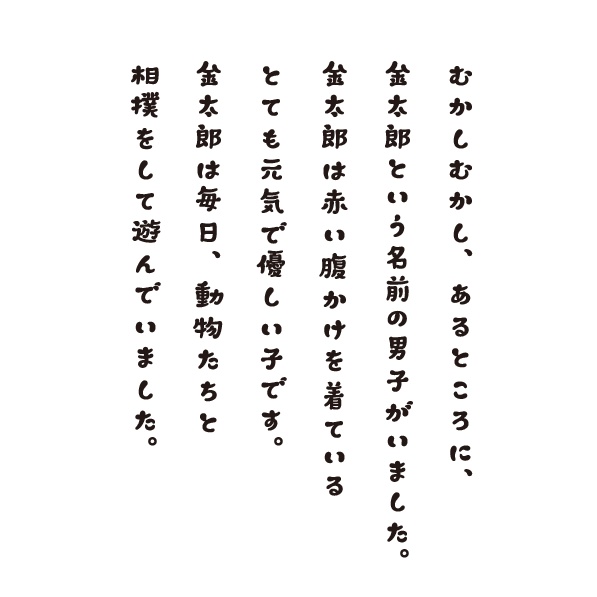 むかしむかし、あるところに、
金太郎という名前の男子がいました。
金太郎は赤い腹かけを着ている
とても元気で優しい子です。
金太郎は毎日、動物たちと
相撲をして遊んでいました。